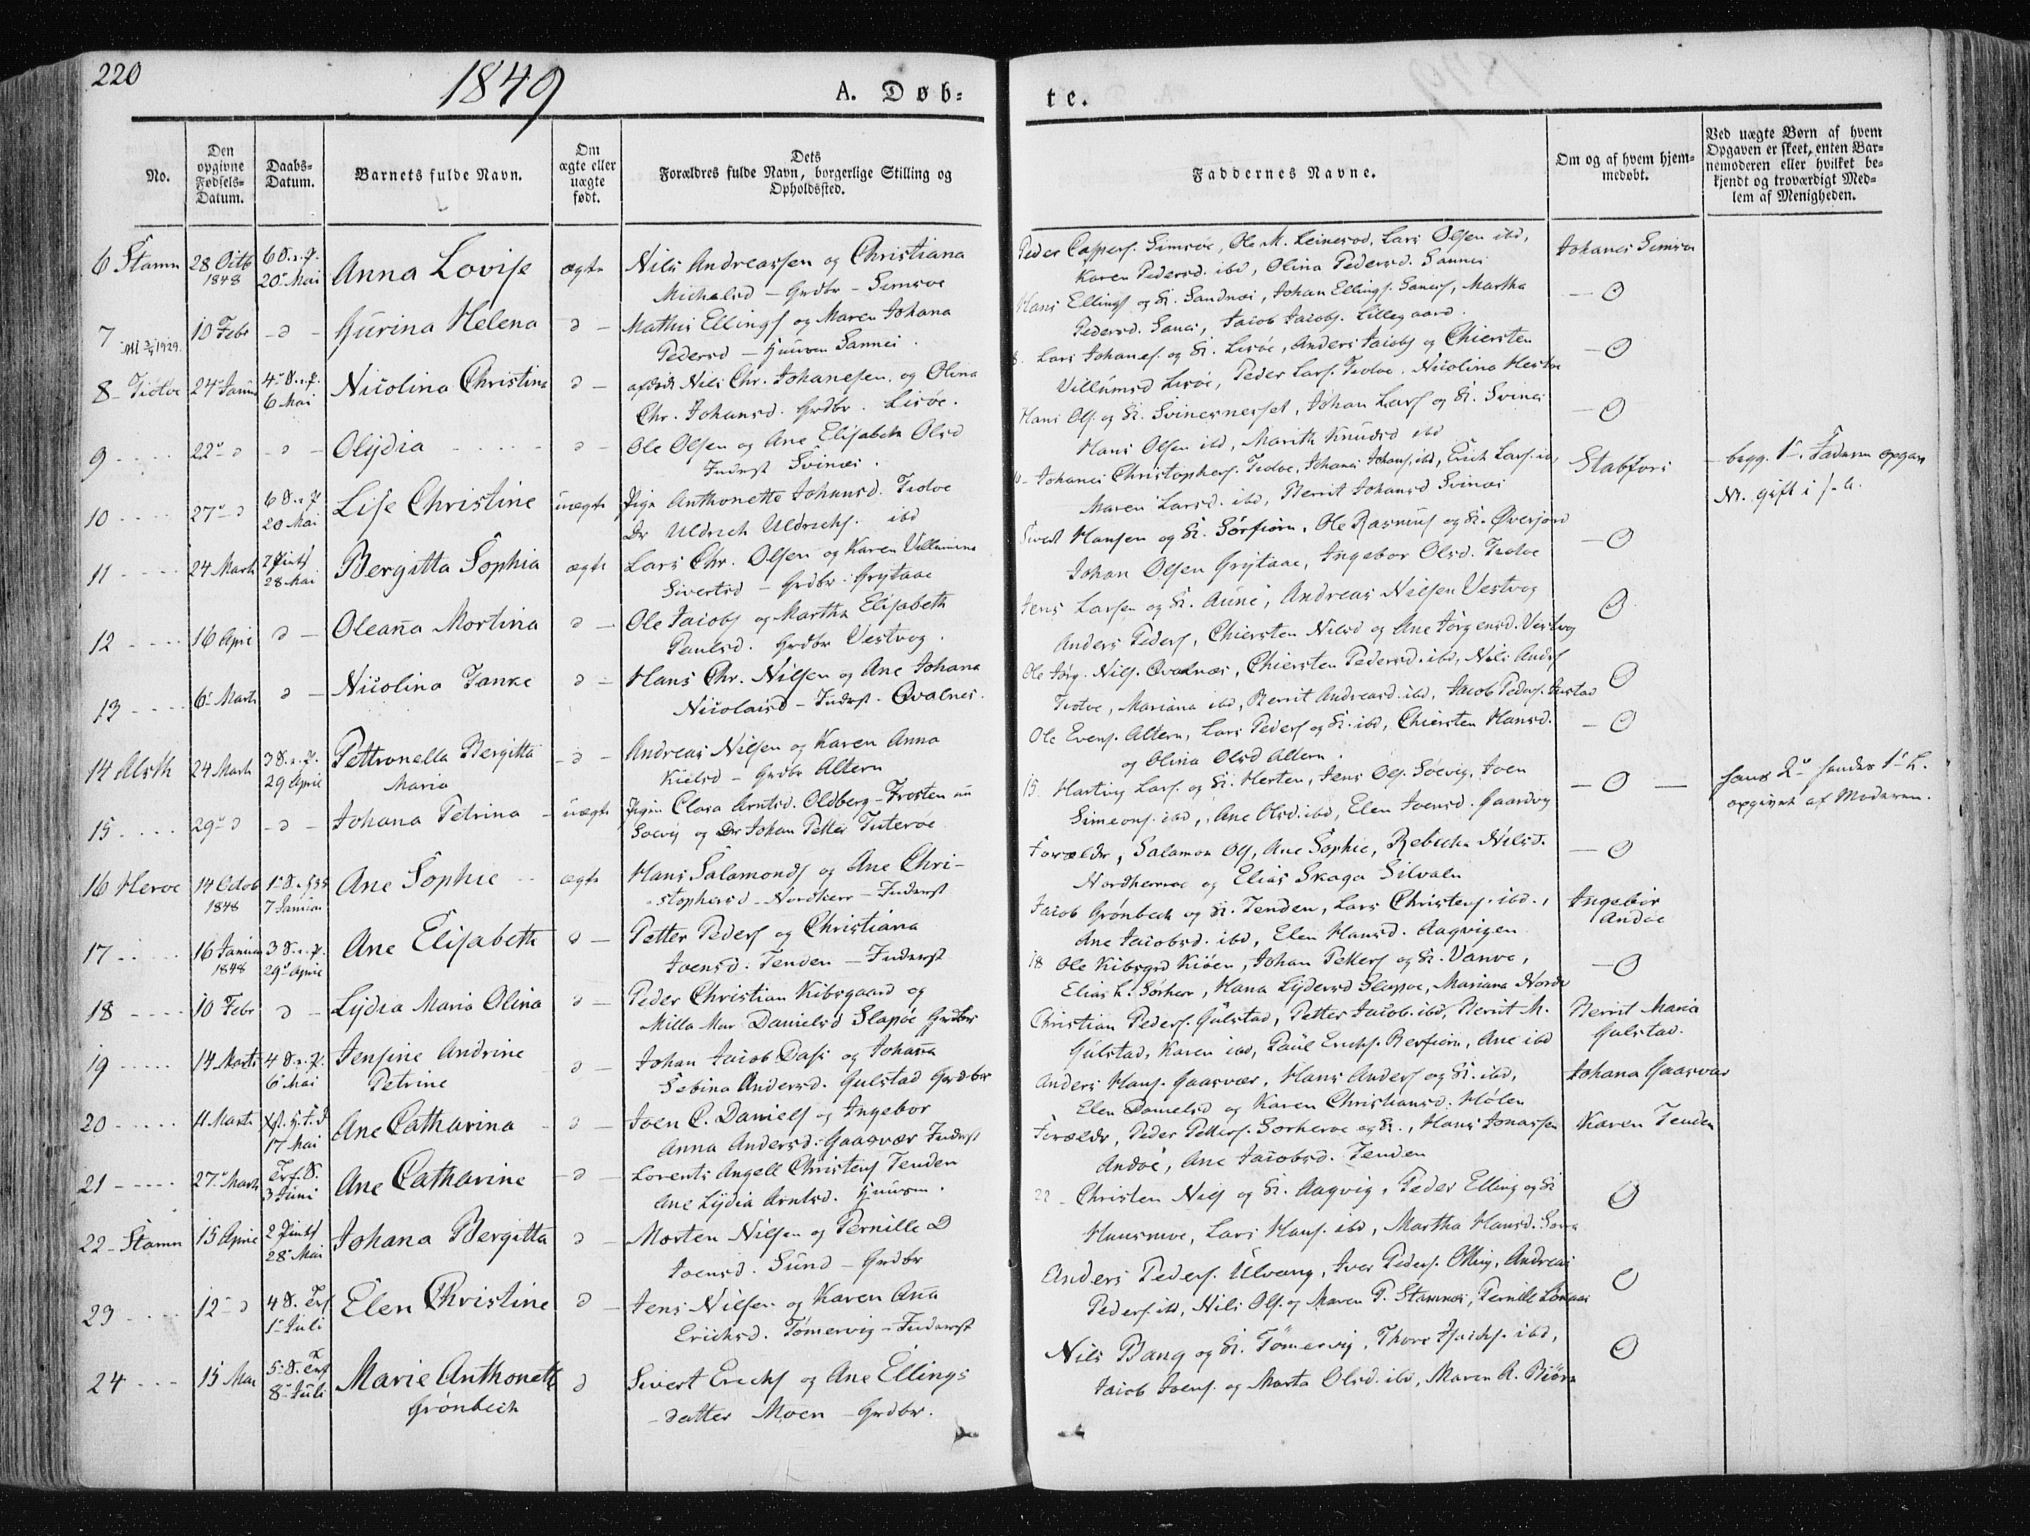 220
1849
A. Døb-
te.
No.
Den opgivne Fødsels-Datum.
Daabs-Datum.
Barnets fulde Navn.
Om ægte eller uægte født.
Dets Forældres fulde Navn, borgerlige Stilling og Opholdssted.
Faddernes Navne.
Om og af hvem hjem-medøbt.
Ved uægte Børn af hvem Opgaven er skeet, enten Bar-nemoderen eller hvilket be-kjendt og troværdigt Med-lem af Menigheden.
6 Stamn 28 Octb 1848 20 Mai Anna Lovise ægte Nils Andreassen og Christiana
Michelsd - Grdbr - Simsoe
Peder Caspers. Simsøe, Ole M. Leinesod, Lars Olsen ibd,
Karen Pedersd. ibd, Olina Pedersd. Sannes
Johanes Simsøe
7 10 Febr - d - Gurina Helena d - Mathis Ellings og Maren Johana
Pedersd - Huusm Sannes.
Hans Ellings og K. Sandnæs, Johan Ellings. Sanæs, Martha
Pedersd. Sanæs, Jacob Jacobs. Lillegaard.
- O
8 - Tiotøe 24 Januar 6 Mai Nicolina Christina d - Nils Chr. Johanesen og Olina
Chr. Johansd. Grdbr. Lisøe.
8. Lars Johanes. og K. Lisøe, Anders Jacobs og Chiersten
Villumsd Lisøe, Peder Lars. Tiotøe, Nicolina Hestøe
- O
9 22 - d - d - Olydia d - Ole Olsen og Ane Elisabeth Olsd
Inderst Svinæs.
Hans Ols og K. Svinesnesset, Johan Lars og K. Svinæs
Hans Olsen ibd, Marith Knudsd ibd
- O
10 27 - d 20 Mai Lise Christine uægte Pige Anthonette Johansd. Tiotøe
Dr Uldrich Uldrichs. ibd
Johanes Christophers. Tiotøe, Johanes Johans. ibd, Erich Lars. ibd,
Maren Larsd. ibd, Berrit Johansd Svinæs
Stabfors
begg. 1. Faderen opgav
Nr. gift i
11 24 Marts 2 Pints 28 Mai Bergitta Sophia ægte Lars Chr. Olsen og Karen Villumine
Sivertsd - Grdbr. Grytaae
Sivert Hansen og K. Sørfiorn, Ole Rasmus og K. Øverjord
Johan Olsen Grytaae, Ingebor Olsd. Tiotøe
- O
12 16 April d - Oleana Mortina d - Ole Jacobs og Martha Elisabeth
Paulsd. Grdbr Vestvog.
Jens Larsen og K. Aune, Andreas Nilsen Vestvog
Anders Peders, Chiersten Nilsd og Ane Jörgensd. Vestvog
O
13 6 Marts d - Nicolina Tanke d - Hans Chr. Nilsen og Ane Johana
Nicolaisd - Inderst. Qvalnes.
Ole Jörg. Nils. Qvalnæs, Chiersten Pedersd. ibd, Nils Anders
Tiotøe, Mariana ibd, Berrit Andreasd. ibd, Jacob Peders.
O
14 Alsth 24 Marts 29 April Pettronella Bergitta
Maria - d - Andreas Nilsen og Karen Anna
Kielsd - Grdbr Altern
Ole Evens. Altern, Lars Peders og K. ibd, Chiersten Hansd.
og Olina Olsd Altern.
- O
15 29 - d - d - Johana Petrina uægte Pigen Clara Arntsd. Oldberg - Trosten nu
Soevig og Dr Johan Petter Tuterøe
15. Hartvig Lars. og K. Hesten, Jens Ols. Søevig, Joen
Simeons. ibd, Ane Olsd. ibd, Elen Joensd. Gaardvog
- O -
hans 2 hendes 1 L.
opgivet af Moderen.
16 Herøe 14 Octob 1848 7 Januar Ane Sophie ægte Hans Salamonds og Ane Chri-
stophersd - Nordherr - Inderst
Forældr, Salamon Ols, Ane Sophie, Rebecha Nilsd.
Nordherrøe og Elias Skaga Silvaln
- O
17 16 Januar 1848 29 April Ane Elisabeth d - Petter Peders og Christiana
Joensd. Tenden - Inderst
Jacob Grønbech og K. Tenden, Lars Christens. ibd.,
Ane Jacobsd. ibd, Elen Hansd. Aagvigen
Ingebor
Andøe
18 10 Febr d - Lydia Maria Olina d - Peder Christian Kibsgaard og
Milla Mar Danielsd Slapøe Grdbr
18 Ole Kibsgrd Kiøen, Johan Petters og K. Vanve,
Elias L. Sørherr, Hana Lydersd Slapøe, Mariana Nordr
- O
19 14 Marts 6 Mai Jensine Andrine
Petrine d - Johan Jacob Dass og Johana
Sebina Andersd. Gulstad Grdbr
Christian Peders. Gulstad, Petter Jacob. ibd, Berrit M.
Gulstad, Karen ibd, Paul Erichs. Resfiorn, Ane ibd
Berrit Maria
Gulstad.
20 4 Marts 17 Mai Ane Catharina - d - Joen C. Daniels og Ingebor
Anna Andersd. Gaasvær Inderst
Anders Hans. Gaasvær, Hans Anders og K. ibd,
Elen Danielsd og Karen Christiansd. Holen
Johana Gaasvær
21 27 Marts 3 Juni Ane Catharine - d - Lorents Angell Christens Tenden
Ane Lydia Arntsd. Huusm.
Forældr, Peder Petters. Sørherøe og K., Hans Jonassen
Andøe, Ane Jacobsd. Tenden
Karen Tenden
22 - Stamn 15 April 2 Pints 28 Mai Johana Bergitta d - Morten Nilsen og Pernille D
Joensd. Sund - Grdbr
22 - Christen Nils og K. Aagvig, Peder Elling og K
Huusmoe, Lars Hans. ibd, Martha Hansd. Sora
O
23 12 - d 1 Juli Elen Christine d - Jens Nilsen og Karen Ana
Erichsd. Tømervig - Inderst
Anders Peders. Ulvang, Iver Peders. Olling, Andreas
Peders. ibd, Nils Ols. og Maren P. Stamnæs, Pernille Lonaas
O
24 15 Mai 8 Juli Marie Anthonett
Grønbech d Sivert Erichs og Ane Ellings
- datter Moen - Grdbr.
Nils Bang og K. Tømervig, Thore Isachs. ibd,
Jacob Joens. og Marta Olsd. ibd, Maren A. Biörn
O